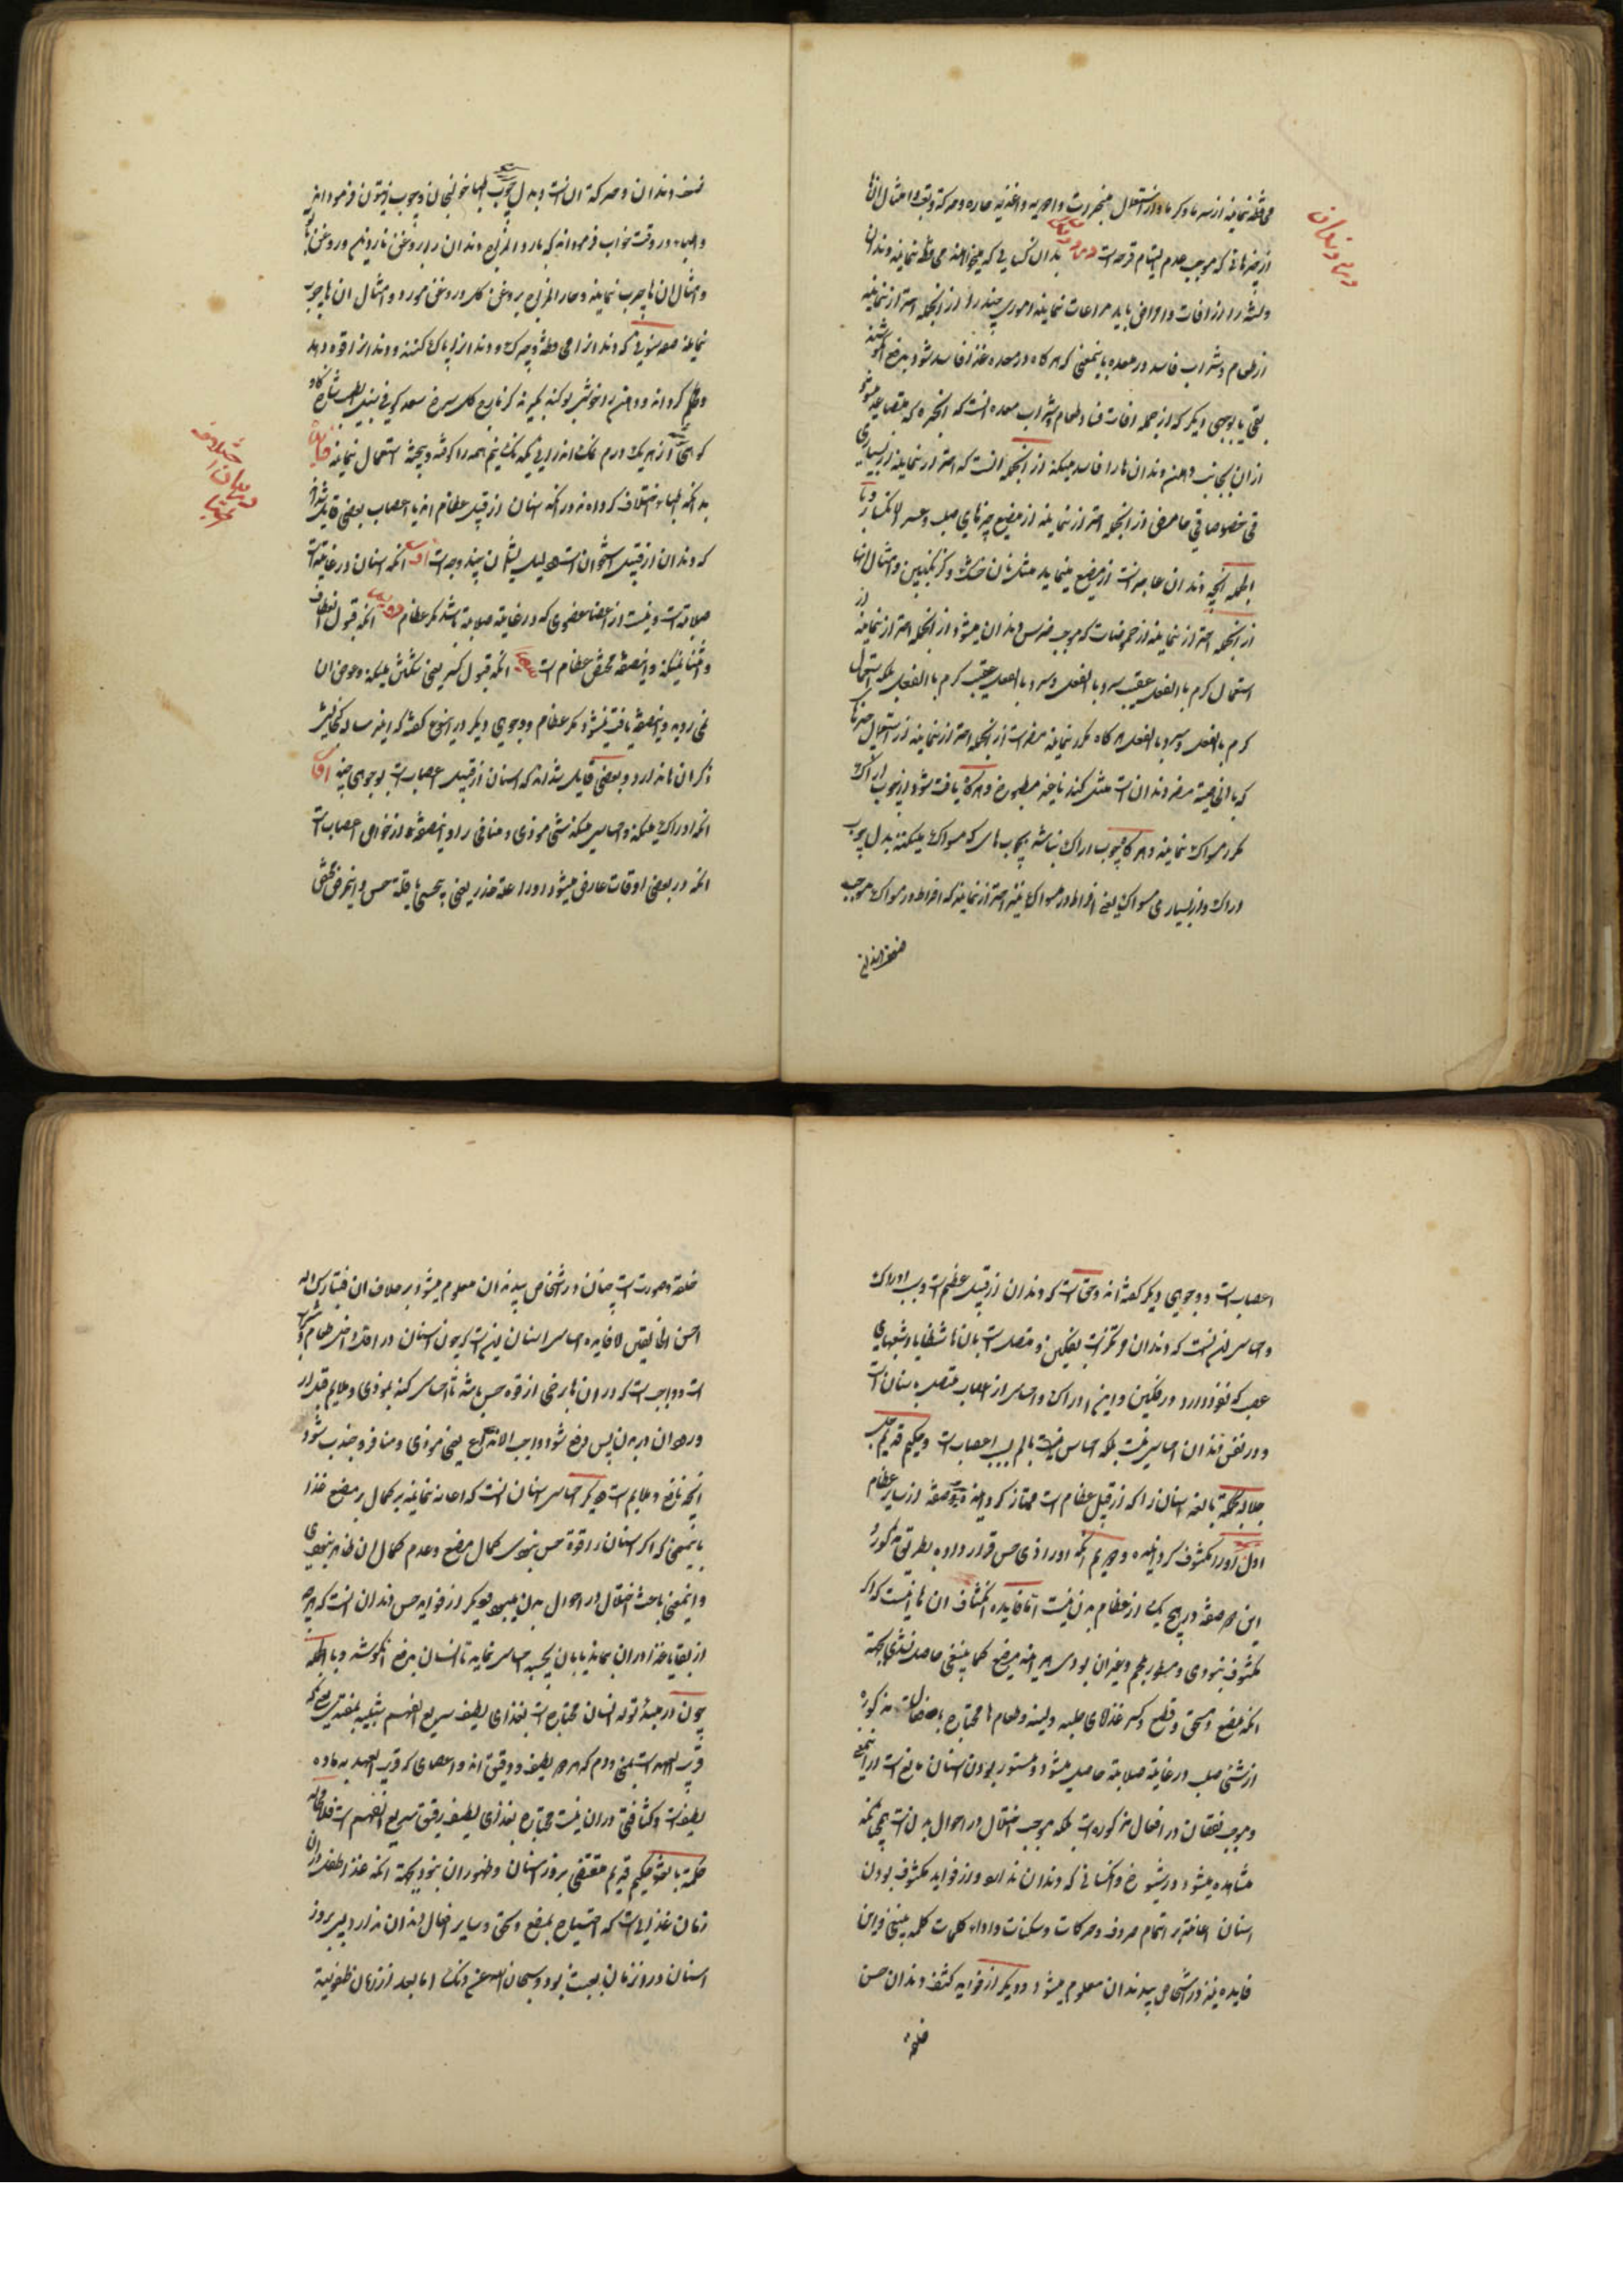 محافظه نمایند از سرما و گرما و از استعمال مبخرات و ادویه و اغذیه حاره و حرکت و تعب و امثال انها
از چیزهائی که موجب عدم التیام قرحه است بدان کسانی که میخواهند محافظه نمایند دندان
ولثه را از افات و امراض باید مراعات نمایند اموری چند را از انجمله احتراز نمایند
از طعام و شراب فاسد در معده باینمعنی که هرگاه در معده غذا فاسد شود بدفع کوشند
بقی یا بوجهی دیگر که از جمله افات فساد طعام و شراب معده انست که ابخره که متصاعد میشود
از ان بجانب دهن دندان ها را فاسد میکند از انجمله انست که احتراز نمایند از بسیاری
قی خصوصا قی حامض از انجمله احتراز نمایند از مضغ چیزهای صلب و عسر الانکسار و
بالجمله انچه دندان عاجز است از مضغ مینماید مثل نان خشک و گزانگبین و امثال انها
از انجمله احتراز نمایند از حموضات که موجب ضرس دندان میشود از انجمله احتراز نمایند از
استعمال گرم بالفعل عقیب سرد بالفعل و سرد بالفعل عقیب گرم بالفعل بلکه استعمال
گرم بالفعل و سرد بالفعل هرگاه مکرر نمایند مضر است از انجمله احتراز نمایند از استعمال چیزها
که بالخاصیة مضر دندان است مثل گندنا خیه مطبوخ و هرگاه یافت شود از چوب اراک
مکرر مسواک نمایند و هرگاه چوب اراک نباشد بچوب هائی که مسواک میکنند بدل چوب
اراک و از بسیاری مسواک یعنی افراط در مسواک نیز احتراز نمایند که افراط در مسواک موجب
درد دندان
ضعف دندان و حرکت ان است و بدل چوب اطبا خولنجان و چوب زیتون فرموده اند
و اطباء در وقت خواب فرموده اند که بارد المزاج دندان را بروغن ناردین و روغن
و امثال ان ها چرب نمایند و حار المزاج بروغن گل و روغن مورد و امثال ان ها چرب
نمایند صفت سنونی که دندان را محافظت و چرک دندان را پاک کند و دندان را قوه دهد
و محکم گرداند و دهن را خوشبو کند بگیرند کزمازج گل سرخ سعد کوفی سنبل الطیب شاخ گاو
کوهی از هر یک درم نمک اندرانی نیم همه را کوفته و بیخته استعمال نمایند فایده
بدانکه اطباء اختلاف کرده اند در انکه اسنان از قبیل عظام اند یا اعصاب بعضی قایل شده اند
که دندان از قبیل استخوان است و دلیل ایشان چند وجه است اول انکه اسنان در غایت
صلابة است و نیست از اعضا عضوی که در غایة صلابة باشد مگر عظام دویم انکه قبول انعطاف
و انثنا نمیکند و این صفت مختص عظام است سیم انکه قبول کسر یعنی شکستن میکند و عوض ان
نمی روید و این صفت یافت نمیشود مگر عظام و وجوهی دیگر در این نوع گفته که این رساله گنجایش
ذکر ان ها ندارد و بعضی قایل شده اند که اسنان از قبیل اعصاب است بوجوهی چند اول
انکه ادراک میکند و احساس میکند شئ موذی و منافی را و این صفت از خواص اعصاب است
انکه در بعضی اوقات عارض میشود او را علة خدر یعنی بیحسی یا قلة حس و این مرض مختص
اختلاف
دندان را
اعصاب است و وجوهی دیگر گفته اند و حق انست که دندان از قبیل عظم است و سبب ادراک
و احساس الم انست که دندان مرتکز است بفکین و متصل است بان ها شظایا و شعبهای
عصب که نفوذ دارد در فکین و این ادراک و احساس از اعصاب متصل به اسنان است
و در نفس دندان احساس نیست بلکه احساس بالم بسبب اعصاب است و حکیم قدیم جل
جلاله بحکمة بالغه اسنان را که از قبیل عظام است ممتاز گردانیده بدو صفت از سایر عظام
اول او را مکشوف گردانیده و دویم انکه او را ذی حس قرار داده بطریق مذکور و
این دو صفت در هیچ یک از عظام بدن نیست اما فایده انکشاف ان ها اینست که اگر
مکشوف نبودی و مستور بلحم و غیر ان بودی هر اینه مضغ کما ینبغی حاصل نشدی بجهة
انکه مضغ و سحق و قطع و کسر غذاهای صلبه و لینه و طعام ها محتاج بافعال مذکوره
از شئ صلب در غایة صلابة حاصل میشود و مستور بودن اسنان مانع است از اینمعنی
و موجب نقصان در افعال مذکوره است بلکه موجب اختلال در احوال بدن است چنانچه
مشاهده میشود در شیوخ و کسانی که دندان ندارند و از فواید مکشوف بودن
اسنان اعانة بر اتمام حروف و حرکات و سکنات و اداء کلمات کما ینبغی و این
فایده نیز در اشخاص بیدندان معلوم میشود و دیگر از فواید کشف دندان حسن
خلقة و صورت است چنان در اشخاص بیدندان معلوم میشود بر خلاف ان فتبارک الله
احسن الخالقین و فایده احساس اسنان اینست که چون اسنان در اخذ طعام و شراب
است و واجب است که در ان ها برخی از قوه حس باشد تا احساس کند بموذی و ملایم قبل از
ورود ان در بدن پس دفع شود واجب الاندفاع یعنی موذی و منافر و جذب شود
انچه نافع و ملایم است دیگر احساس اسنان انست که اعانه نمایند بر کمال بر مضغ غذا
باینمعنی که اگر اسنان را قوة حس نبودی کمال مضغ و عدم کمال ان ظاهر نبودی
و اینمعنی باعث اختلال در احوال بدن میبود و دیگر از فواید حس دندان انست که هرچه
از بقایا غذا در ان بماند یا بان بچسبد احساس نماید تا انسان بدفع ان کوشد و بالجمله
چون در مبدء تولد انسان محتاج است بغذای لطیف سریع الهضم شبیه بمغتذی که
قریب العهد است بمنی و دم که هر دو لطیف و رقیق اند و اعضای که قریب العهد به ماده
لطیفست و کثافتی در ان نیست محتاج بغذای لطیف رقیق سریع الهضم است فلا محاله
حکمة بالغه حکیم قدیم مقتضی بروز اسنان و ظهور ان نبود بجهة انکه غذا طفل در ان
زمان غذائیست که احتیاج بمضغ و سحق و سایر افعال دندان ندارد پس بروز
اسنان در ان زمان عبث بود و سبحان الله عن ذلک اما بعد از زمان طفولیة